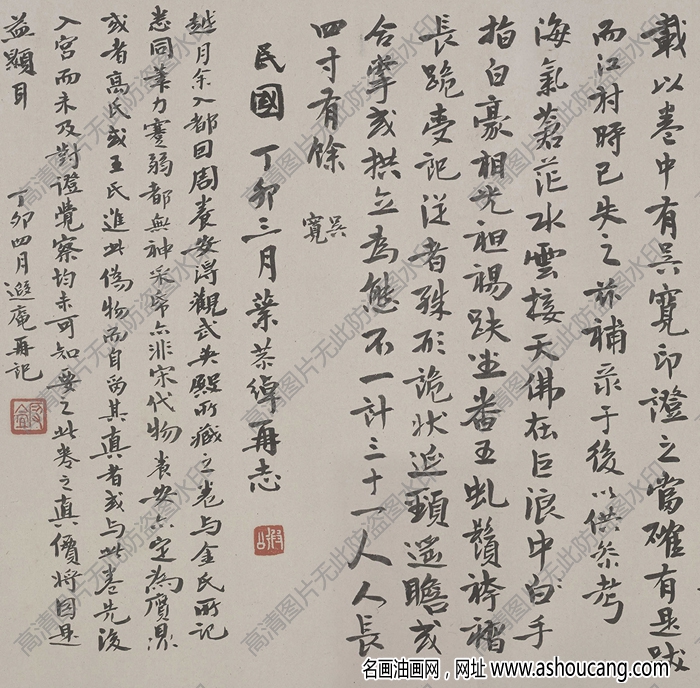 載以卷中有吳寬印證之當確有是跋
而江村時已失之茲補录于後以供参考
海氣蒼茫水雲接天佛在巨浪中白手
指白豪相光袒裼趺坐番王虬鬚袴褶
長跪受記從者殊形詭状延頸遥瞻或
合掌或拱立為態不一計三十一人人長
四寸有餘 吳寬
民國丁卯三月葉恭綽再志
越月余入都曰周養安得觀武英殿所藏之卷与金氏所記
悉同筆力蹇弱都無神采帋亦非宋代物養安亦定為贋鼎
或者高氏或王氏進此偽物而自留其真者或与此卷先後
入宫而未及對證覺察均未可知要之此卷之真價將因是
益顯耳
丁卯四月遐庵再記
高清图片无此防盗图水印
名画油画网，网址 www.ashoucang.com